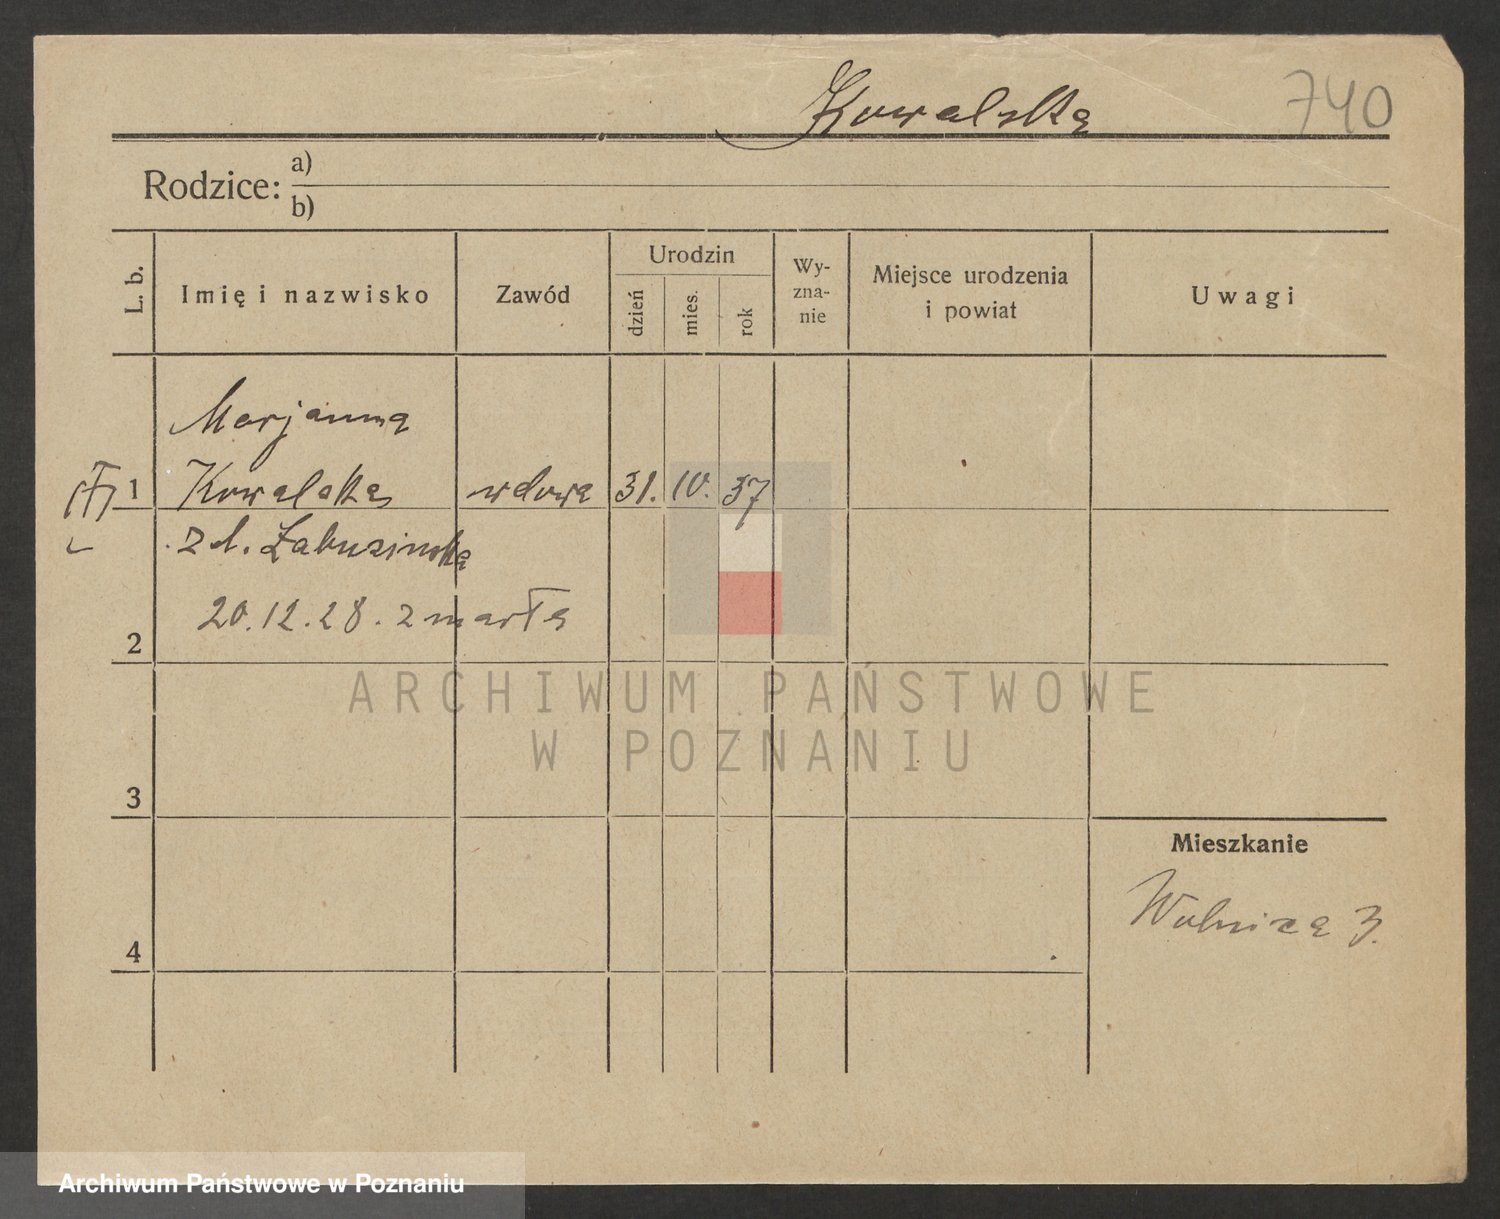 Kowalska 740
Rodzice: a)
b)
L. b. Imię i nazwisko Zawód Urodzin dzień mies. rok Wy-zna-nie Miejsce urodzenia i powiat Uwagi
Marjanna
1 Kowalska wdowa 31. 10. 37
z d. Żabuzinska
20.12.28. zmarła
2
ARCHIWUM PAŃSTWOWE
W POZNANIU
3
Mieszkanie
Wolnica 3.
4
Archiwum Państwowe w Poznaniu